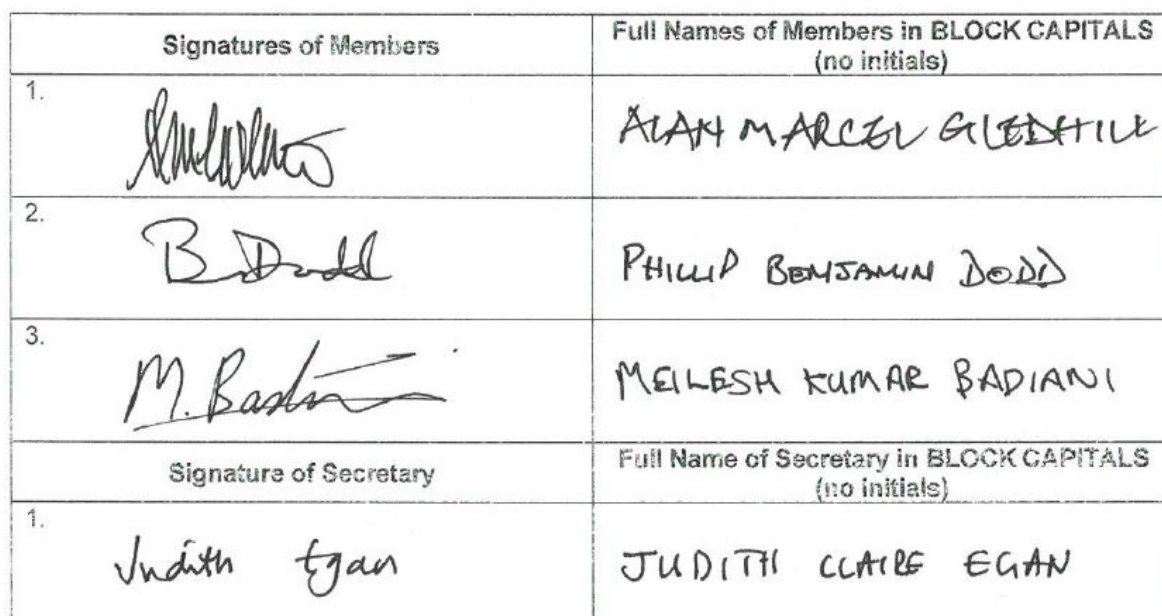 Signatures of Members
Full Names of Members in BLOCK CAPITALS
(no initials)
1.
ALAN MARCEL GLEDHILL
2.
B Dodd
PHILLIP BENJAMIN DODD
3.
M. Badiani
MEILESH KUMAR BADIANI
Signature of Secretary
Full Name of Secretary in BLOCK CAPITALS
(no initials)
1.
Judith Egan
JUDITH CLAIRE EGAN